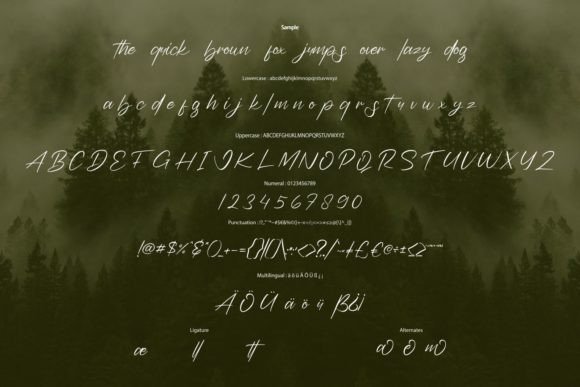 Sample
the quick brown fox jumps over lazy dog
Lowercase : abcdefghijklmnopqrstuvwxyz
a b c d e f g h i j k l m n o p q r s t u v w x y z
Uppercase : ABCDEFGHIJKLMNOPQRSTUVWXYZ
A B C D E F G H I J K L M N O P Q R S T U V W X Y Z
Numeral : 0123456789
1 2 3 4 5 6 7 8 9 0
Punctuation :
Multilingual : ä ö ü Ä Ö Ü ß ¿ ¡
Ä Ö Ü ä ö ü ß ¿ ¡
Ligature Alternates
æ ll tt a o m